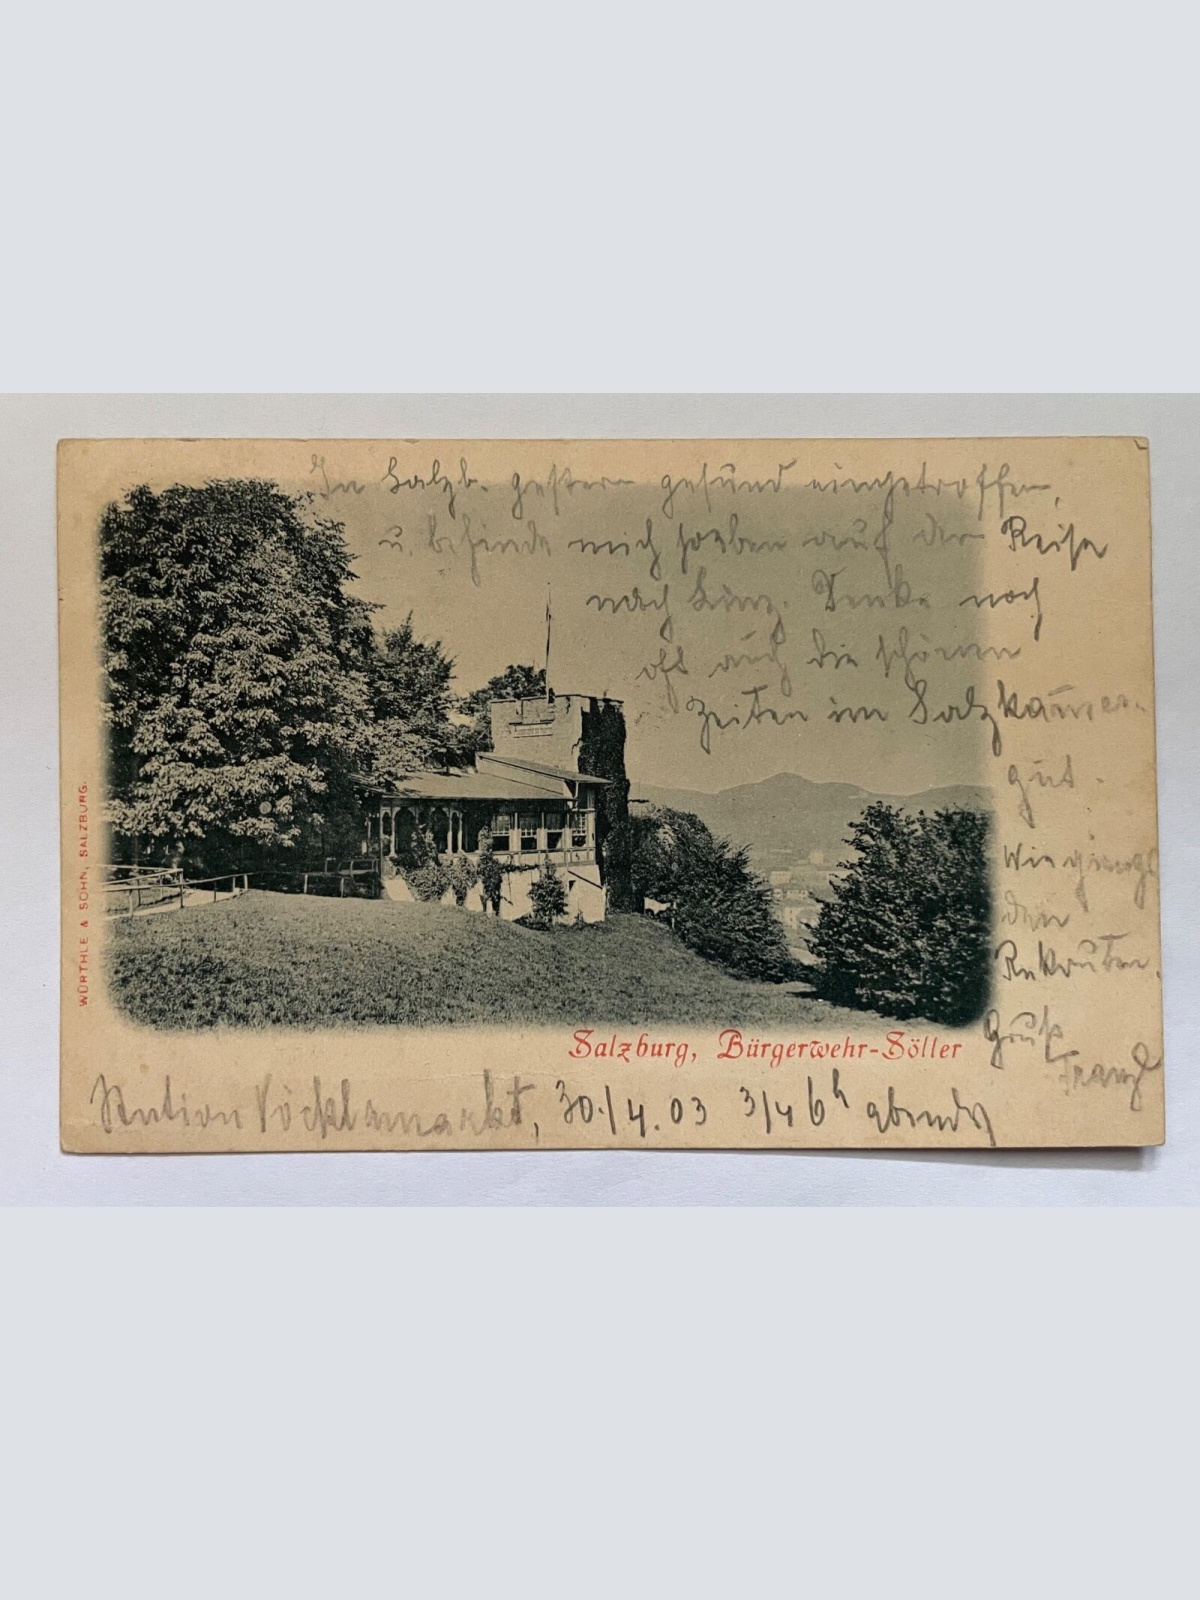 In Salzb. gestern gesund eingetroffen,
u. befinde mich soeben auf der Reise
nach Linz. Denke noch
oft auch die schönen
Zeiten im Salzkam̄er-
gut.
Wie gings
den
Rekruten.
Gruß
Franzl
WÜRTHLE & SOHN, SALZBURG.
Salzburg, Bürgerwehr-Söller
Station Vöcklamarkt, 30./4.03 3/4 6h abends